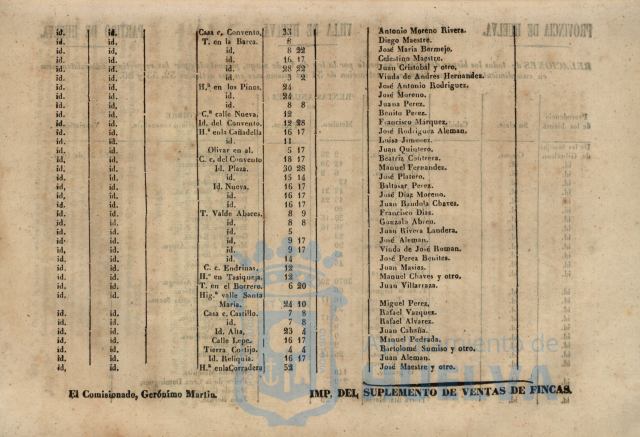 id. id. Casa c, Convento, 33 Antonio Moreno Rivera.
id. id. T. en la Barca. 6 Diego Maestre.
id. id. id. 8 22 José María Bermejo.
id. id. id. 16 17 Celestino Maestre.
id. id. id. 28 22 Juan Cristobal y otro.
id. id. id. 3 2 Viuda de Andres Hernandez.
id. id. H.ª en los Pinos. 24 José Antonio Rodriguez.
id. id. id. 24 José Moreno.
id. id. id. 8 8 Juana Perez.
id. id. C.ª calle Nueva. 12 Benito Perez.
id. id. Id. del Convento. 12 28 Francisco Marquez.
id. id. H.ª enla Cañadella 16 17 José Rodriguez Aleman.
id. id. id. 11 Luisa Jimenez.
id. id. Olivar en al. 5 17 Juan Quintero.
id. id. C. c, del Convento 18 17 Beatriz Contrera.
id. id. Id. Plaza. 30 28 Manuel Fernandez.
id. id. id. 15 14 José Platero.
id. id. Id. Nueva. 16 17 Baltasar Perez.
id. id. id. 16 17 José Diaz Moreno.
id. id. id. 16 17 Juan Bandula Chaves.
id. id. T. Valde Abares. 8 9 Francisco Dias.
id. id. id. 8 8 Gonzalo Abien.
id. id. id. 5 Juan Rivera Landera.
id. id. id. 9 17 José Aleman.
id. id. id. 9 17 Viuda de José Roman.
id. id. id. 14 José Perez Benites.
id. id. C. c. Endrinas, 12 Juan Masias.
id. id. H.ª en Tasiqueja. 12 Manuel Chaves y otro,
id. id. T. en el Borrero. 6 20 Juan Villarraza.
id. id. Hig.ª valle Santa
Maria. 24 10 Miguel Perez,
id. id. Casa c. Castillo. 7 8 Rafael Vazquez.
id. id. id. 7 8 Rafael Alvarez.
id. id. Id. Alta, 23 4 Juan Cabaña.
id. id. Calle Lepe. 16 17 Manuel Pedrada.
id. id. Tierra Cortijo. 4 4 Bartolomé Sumiso y otro.
id. id. Id. Reliquia. 16 17 Juan Aleman.
id, id. H.ª enlaCorradera 52 José Maestre y otro.
El Comisionado, Gerónimo Martin. IMP. DEL SUPLEMENTO DE VENTAS DE FINCAS.
Ayuntamiento de
HUELVA